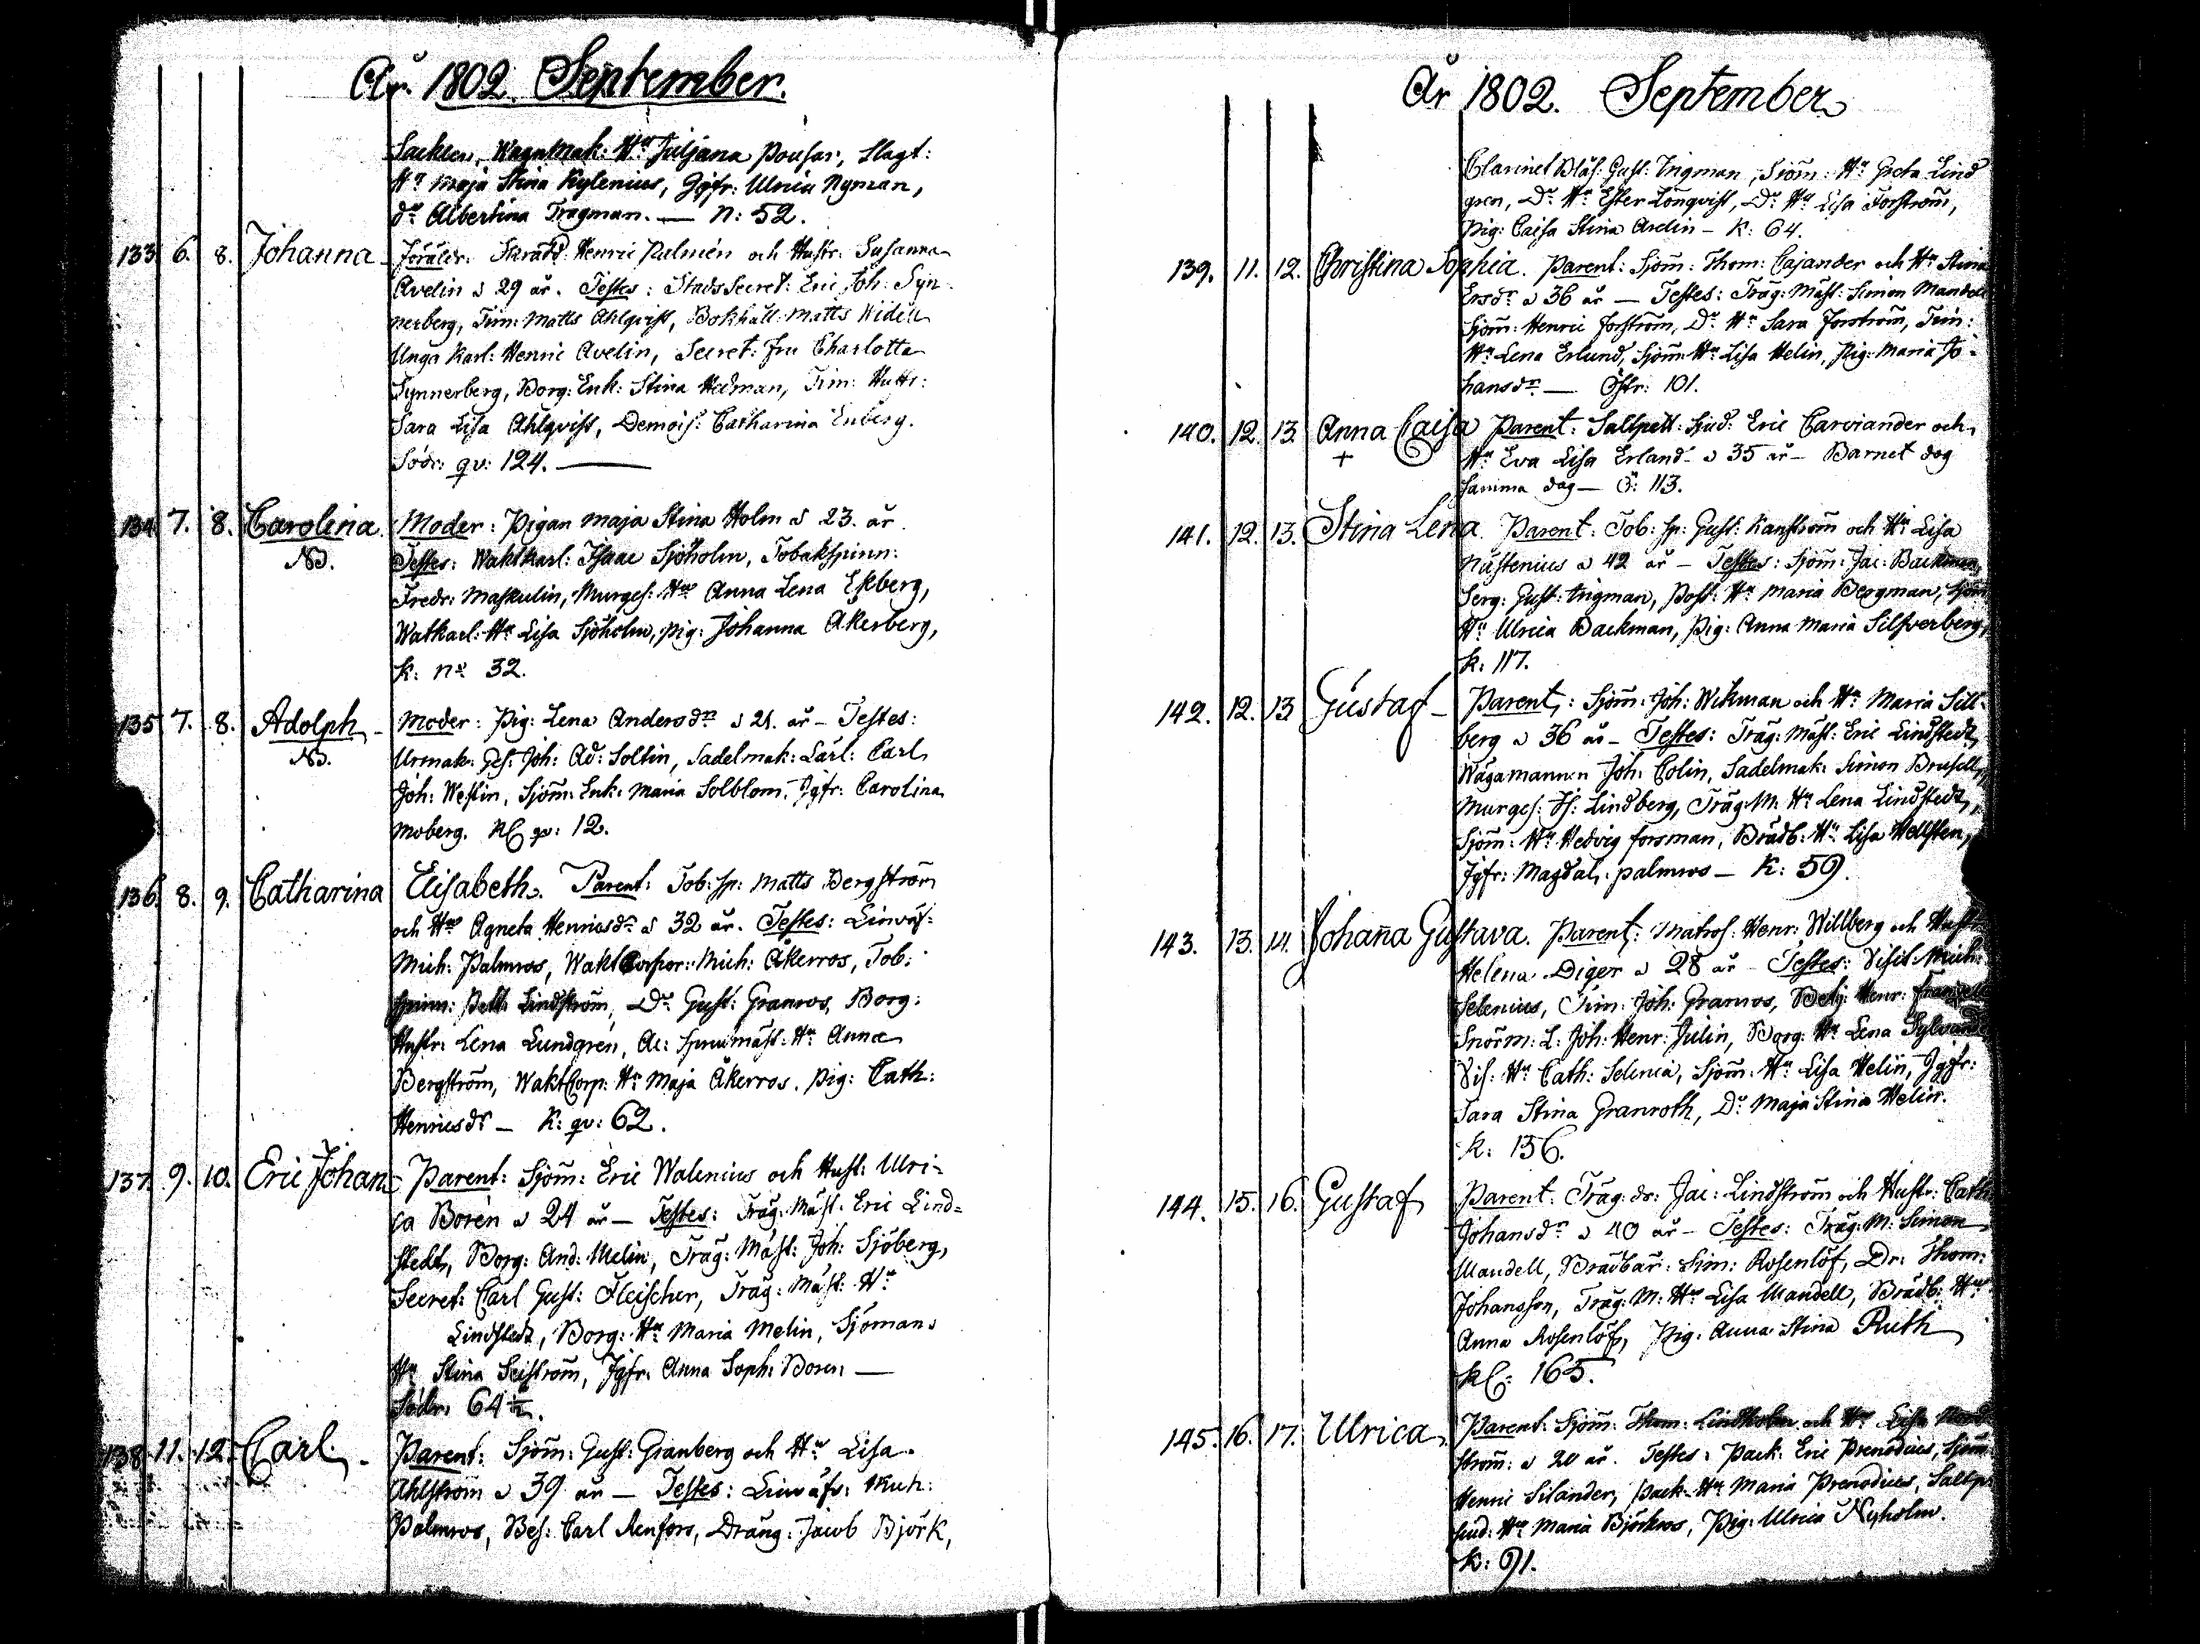 År 1802. September.
Sacklen, WagnMak: Hu Juljana Pousar, Slagt:
Hu Maja Stina Kylenius, Jgfr: Ulrica Nyman,
do Albertina Tragman. — N: 52.
133. 6. 8. Johanna — Föräldr: Skrädd: Henric Palmén och Hustr: Susanna
Avelin å 29 år. Testes: StadsSecret: Eric Joh: Syn-
nerberg, Tim: Matts Ahlqvist, Bokhåll: Matts Widen
Unga Karl: Henric Avelin, Secret: Fru Charlotta
Synnerberg, Borg: Enk: Stina Hedman, Tim: Hustr:
Sara Lisa Ahlqvist, Demois: Catharina Enberg.
Södr: qv: 124. —
134. 7. 8. Carolina. Moder: Pigan Maja Stina Holm å 23. år.
NB. Testes: Waktkarl: Isaac Sjöholm, Tobakspinn:
Fredr: Maskulin, Murges: Hu Anna Lena Ekberg,
Watkarl: Hu Lisa Sjöholm, pig: Johanna Åkerberg,
K: No 32.
135. 7. 8. Adolph — Moder: Pig: Lena Andersdr å 21. år — Testes:
NB. Urmak: Ges: Joh: Ad: Soltin, Sadelmak: Lärl: Carl
Joh: Westin, Sjöm: Enk: Maria Solblom, Jgfr: Carolina
Moberg. Kl qv: 12.
136. 8. 9. Catharina Elisabeth. Parent: Tob: sp: Matts Bergström
och Hu Agneta Henricsdr å 32 år. Testes: Linwäf:
Mich: Palmros, WaktCorpor: Mich: Åkerros, Tob:
spinn: Pett: Lindström, Do Gust: Granros, Borg:
Hustr: Lena Lundgren, Ac: spinmäst: Hu Anna
Bergström, WaktCorp: Hu Maja Åkerros. Pig: Cath:
Henricsdr — K: qv: 62.
137. 9. 10. Eric Johan — Parent: Sjöm: Eric Walenius och Hust: Ulri-
ca Boren å 24 år — Testes: Träg: Mäst. Eric Lind-
stedt, Borg: And: Melin, Träg: Mäst: Joh: Sjöberg,
Secret: Carl Gust: Fleischer, Träg: Mäst: Hu
Lindstedt, Borg: Hu Maria Melin, Sjömans
Hu Stina Seiström, Jgfr: Anna Soph: Boren —
Södr: 64 1/2.
138. 11. 12. Carl. — Parent: Sjöm: Gust: Granberg och Hu Lisa
Ahlström å 39 år — Testes: Linwäfv: Mich:
Palmros, Bes: Carl Renfors, Dräng: Jacob Björk,
År 1802. September
Clarinet Blås: Gust: Ingman, Sjöm: Hu Greta Lind
gren, Do Hu Ester Lönqvist, Do Hu Lisa Forström,
Pig: Caisa Stina Avelin — K: 64.
139. 11. 12. Christina Sophia. Parent: Sjöm: Thom: Cajander och Hu Stina
Ersdr å 36 år — Testes: Träg: Mäst: Simon Mandell
Sjöm: Henric Forström, Do Hu Sara Forström, Tim:
Hu Lena Erlund, Sjöm: Hu Lisa Helin, Pig: Maria Jo-
hansdr — Östr: 101.
140. 12. 13. Anna Caisa Parent: Sallpett: Sjud: Eric Carviander och
+ Hu Eva Lisa Erland å 35 år — Barnet dog
samma dag — Ö: 113.
141. 12. 13. Stina Lena. Parent: Tob: sp: Gust: Kanström och Hu Lisa
Nustenius å 42 år — Testes: Sjöm: Jac: Backman,
Serg: Gust: Ingman, Post: Hu Maria Bergman, Sjöm
Hu Ulrica Backman, Pig: Anna Maria Silfverberg,
K: 117.
142. 12. 13 Gustaf — Parent: Sjöm: Joh: Wikman och Hu Maria Sill-
berg å 36 år — Testes: Träg: Mäst: Eric Lindstedt,
Wågamannen Joh: Colin, Sadelmak: Simon Brusell,
Murges: Is: Lindberg, Träg: M: Hu Lena Lindstedt,
Sjöm: Hu Hedvig Forsman, Brädb: Hu Lisa Hellsten,
Jgfr: Magdal: Palmros — K: 59.
143. 13. 14. Johanna Gustava. Parent: Matros: Henr: Willberg och Hustr
Helena Diger å 28 år — Testes: Visit: Mich:
Selenius, Tim: Joh: Granros, Betj: Henr:
Snörm: L: Joh: Henr: Julin, Borg: Hu Lena Sylvand
Vis: Hu Cath: Selenia, Sjöm: Hu Lisa Helin, Jgfr:
Sara Stina Granroth, Do Maja Stina Helin.
K: 156.
144. 15. 16. Gustaf Parent: Träg: dr: Jac: Lindström och Hustr: Cath
Johansdr å 40 år — Testes: Träg: M: Simon
Mandell, Brädbär: Sim: Rosenlöf, Dr: Thom:
Johansson, Träg: M: Hu Lisa Mandell, Brädb: Hu
Anna Rosenlöf, Pig: Anna Stina Ruth
Kl: 165.
145. 16. 17. Ulrica. Parent: Sjöm: Thom: Lindholm och Hu Lisa Nord
ström: å 20 år. Testes: Pack: Eric Prenodius, Sjöm:
Henric Silander, Pack: Hu Maria Prenodius, Sallp:
sjud: Hu Maria Björkros, Pig: Ulrica Nyholm.
K: 91.